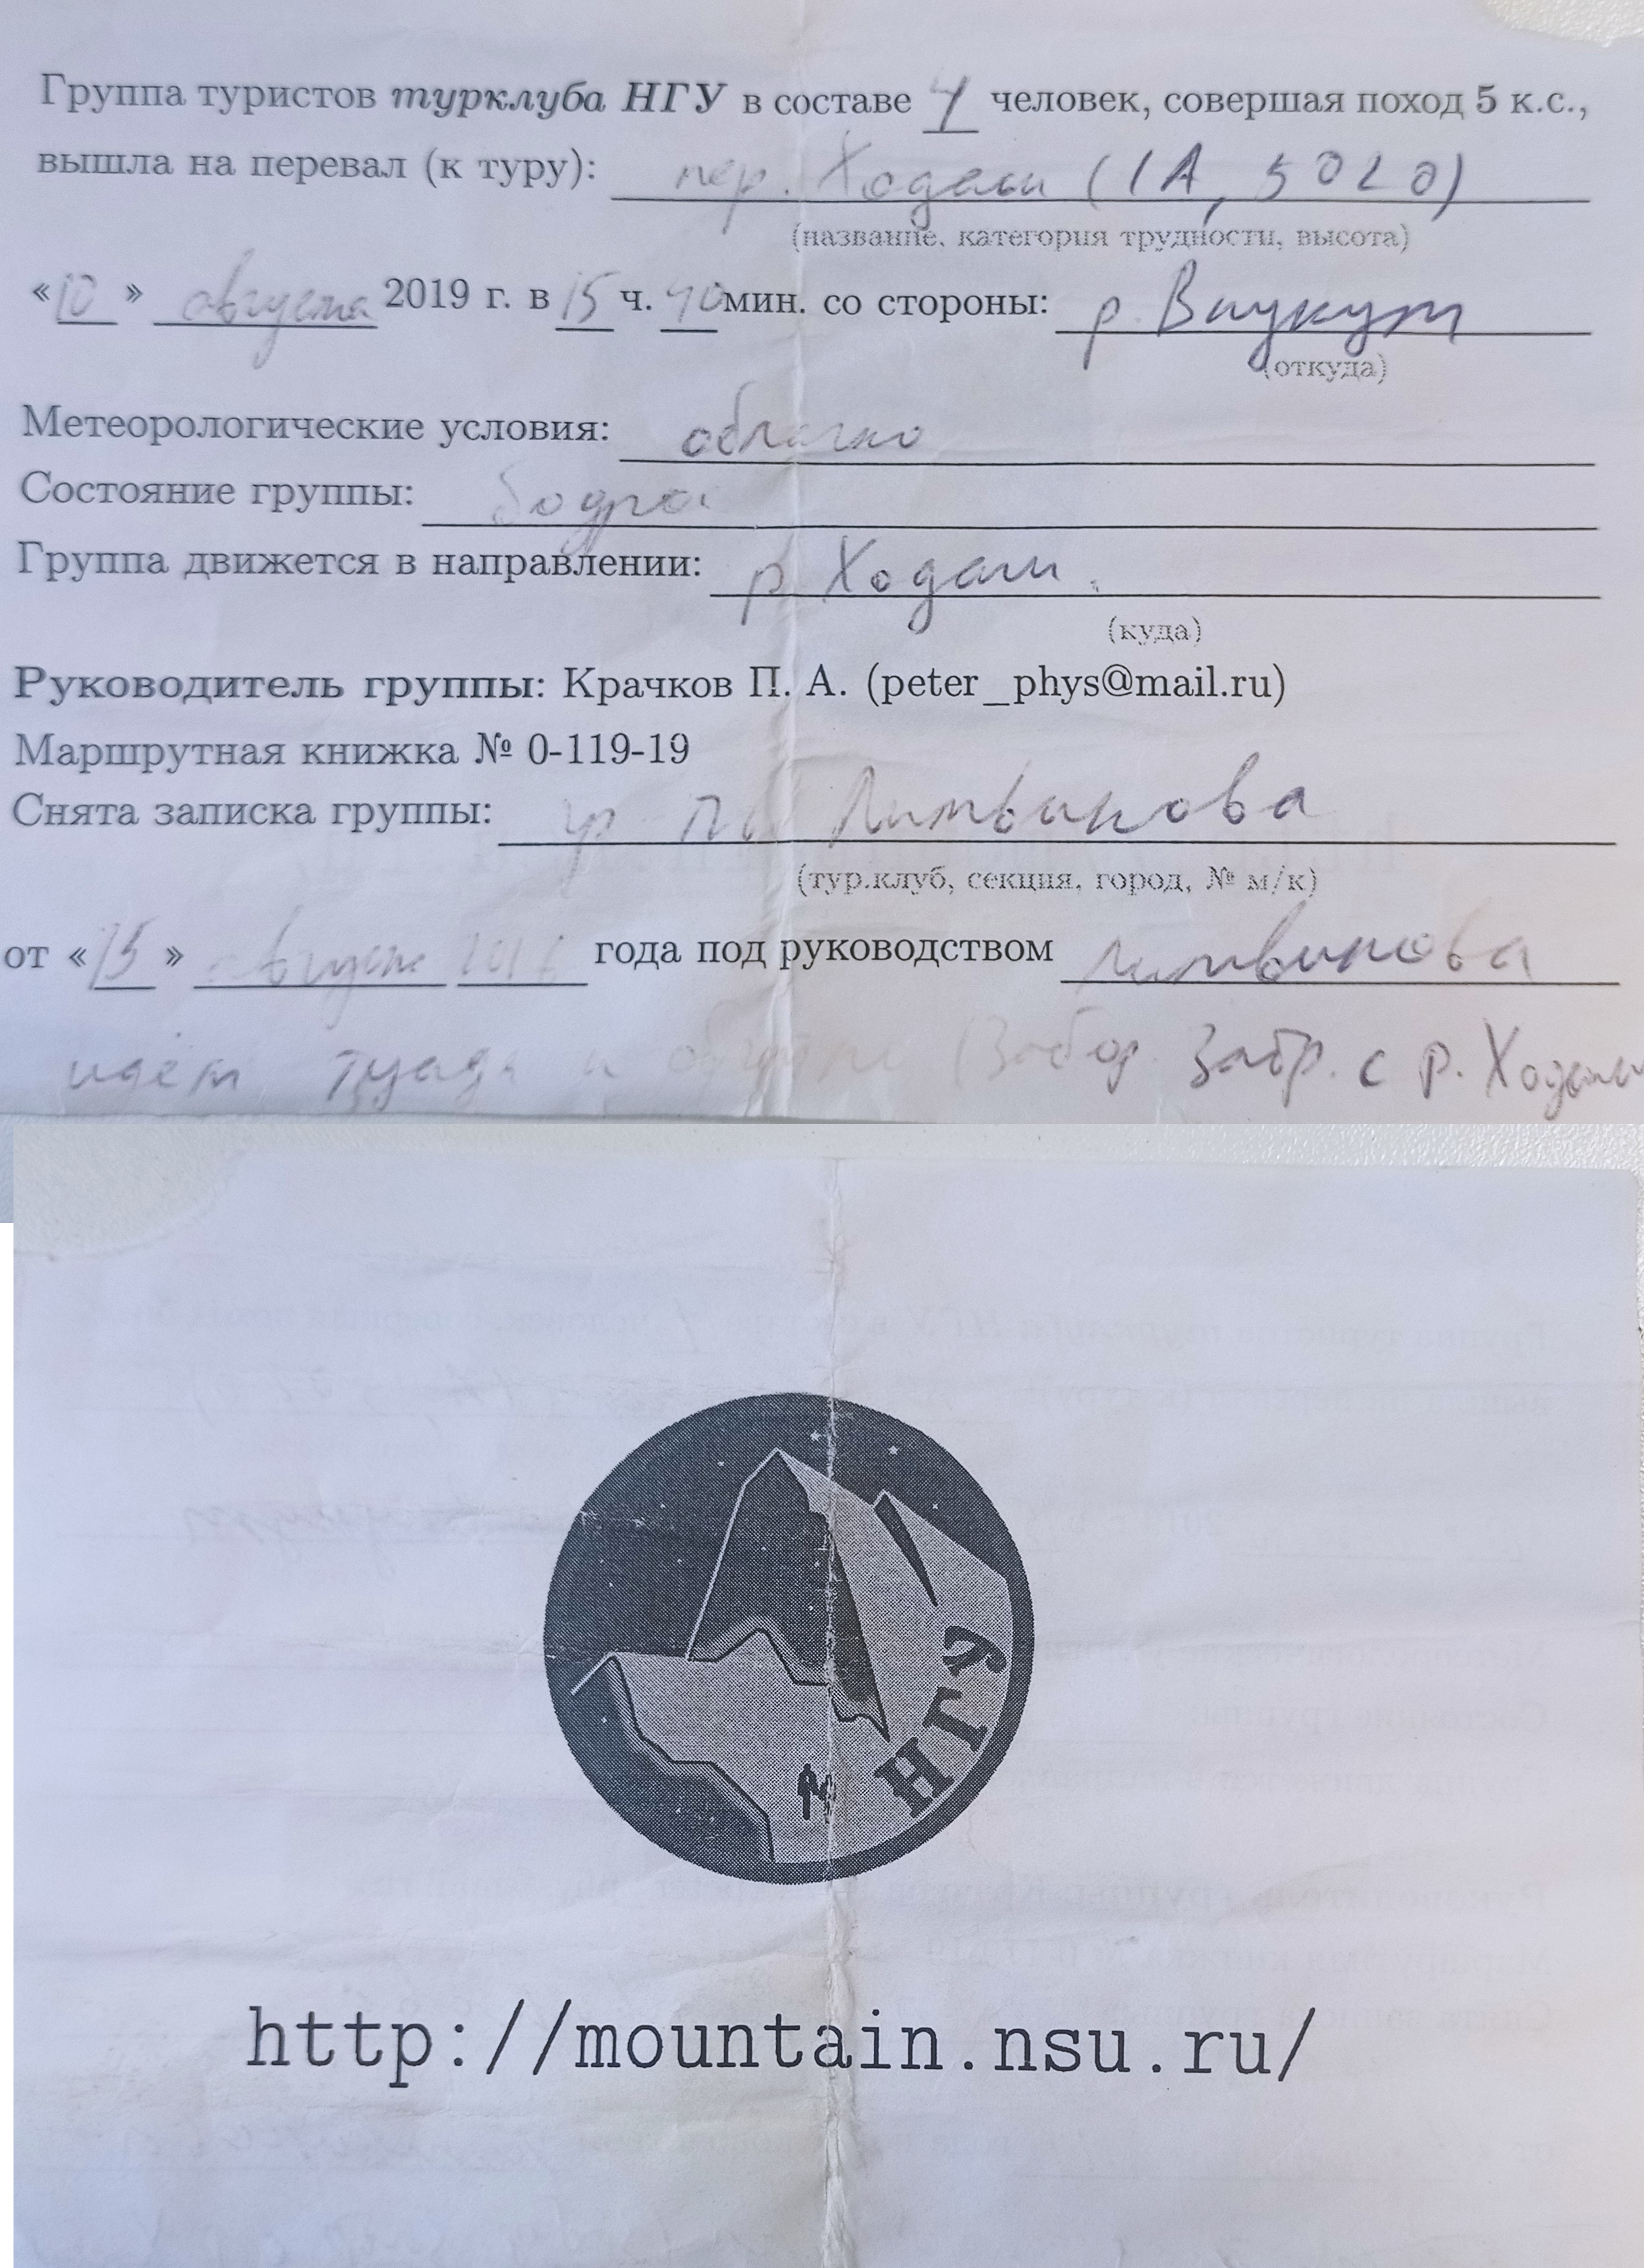 Группа туристов турклуба НГУ в составе 4 человек, совершая поход 5 к.с.,
вышла на перевал (к туру): пер. Ходжаш (1А, 5020)
(название, категория трудности, высота)
«10» августа 2019 г. в 15 ч. 40 мин. со стороны: р. Внукут
(откуда)
Метеорологические условия: облачно
Состояние группы: бодрое
Группа движется в направлении: р. Ходжаш.
(куда)
Руководитель группы: Крачков П. А. (peter_phys@mail.ru)
Маршрутная книжка № 0-119-19
Снята записка группы: гр Литвинова
(тур.клуб, секция, город, № м/к)
от «15» августа года под руководством Литвинова
идём туда и обратно с р. Ходжаш
НГУ
http://mountain.nsu.ru/